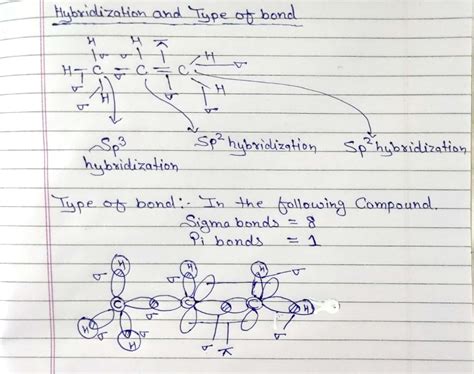 Hybridization and Type of bond
H H π H
σ σ σ
H - C - C = C
σ σ σ H
H
Sp3 hybridization
Sp2 hybridization
Sp2 hybridization
Type of bond:- In the following Compound.
Sigma bonds = 8
Pi bonds = 1
H H H
σ σ σ
C C C H
σ σ σ
H H σ π